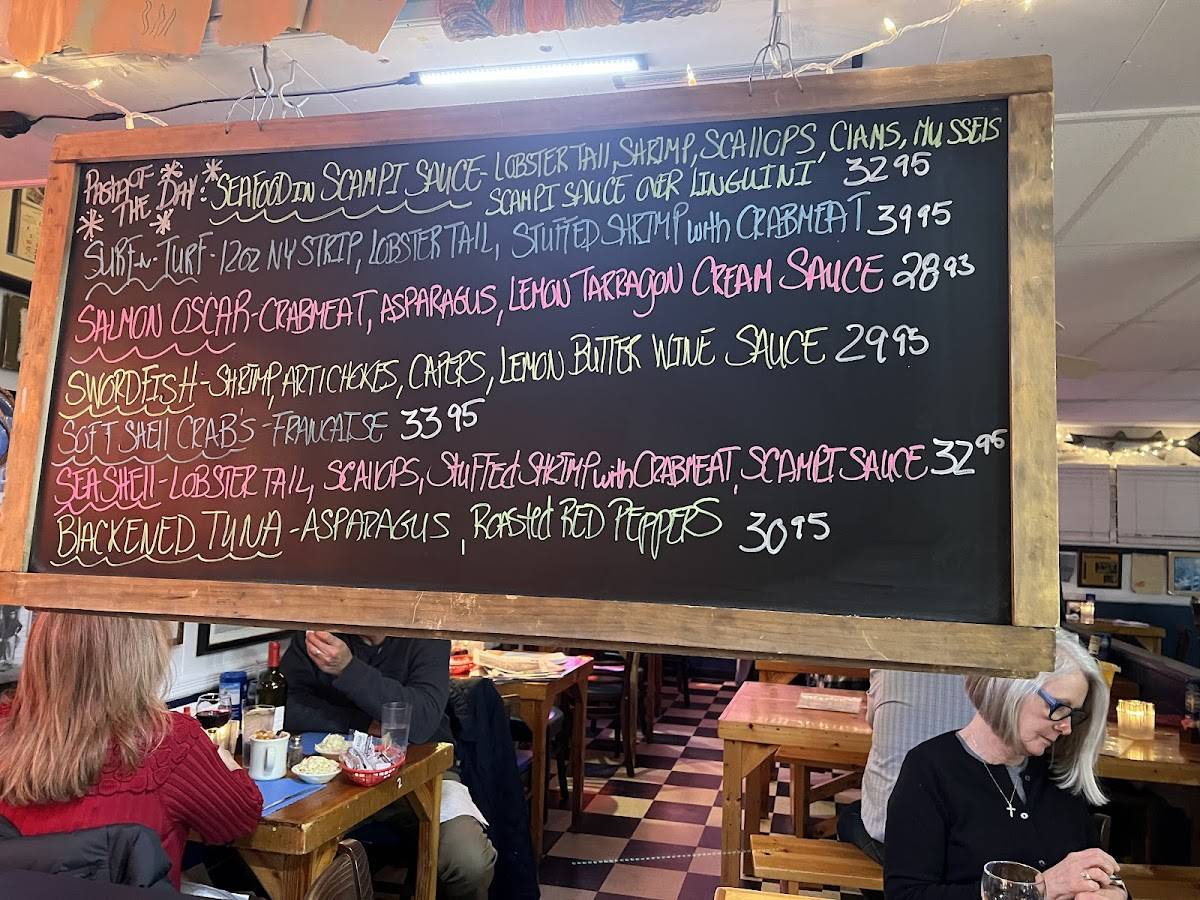 Pasta OF THE DAY: SEAFOOD IN SCAMPI SAUCE - LOBSTER TAIL, SHRIMP, SCALLOPS, CLAMS, MUSSELS
SCAMPI SAUCE OVER LINGUINI 32 95
SURF-N-TURF - 12OZ NY STRIP, LOBSTER TAIL, STUFFED SHRIMP with CRABMEAT 39 95
SALMON OSCAR - CRABMEAT, ASPARAGUS, LEMON TARRAGON CREAM SAUCE 28 93
SWORDFISH - SHRIMP, ARTICHOKES, CAPERS, LEMON BUTTER WINE SAUCE 29 95
SOFT SHELL CRAB'S - FRANCAISE 33 95
SEA SHELL - LOBSTER TAIL, SCALLOPS, Stuffed SHRIMP with CRABMEAT, SCAMPI SAUCE 32 95
BLACKENED TUNA - ASPARAGUS, Roasted RED PEPPERS 30 95
2